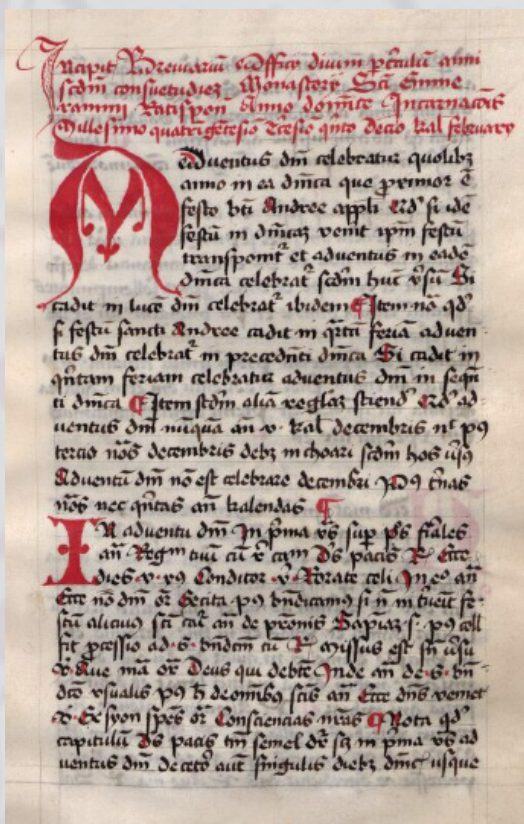 Incipit Breviariũ &Officÿ divini p̱ Circulũ anni
scdm consuetudiēz Monasterÿ Scti Emme
rammi Ratispoñ Anno domĩce Incarnacõis
Millesimo quatrigẽtesiõ Tcesiõ qĩnto Decĩo kał february
Adventus dm̃ celebratur quolibꝫ
anno in ea dm̃ca que proximor ẽ
festo bti Andree appłi Et si idẽ
festũ in dm̃caꝫ venit ipm̃ festũ
transponit᷑ et adventus in eadẽ
dm̃ca celebrat᷑ scdm̃ hũc v̾sũ Si
cadit in lucẽ dm̃ celebrat᷑ ibidem Item nõ qđ
si festũ sancti Andree cadit in qr̃tã feriam adven
tus dm̃ celebrat᷑ in precedẽti dm̃ca Si cadit in
qñtam feriam celebratur adventus dm̃ in sequẽ
ti dm̃ca Item scdm̃ aliã reglaꝫ sciend̾ qđ ad
ventus dm̃ nũquã añ v kał decembris nc̃ pꝰ
tercio nõs decembris debꝫ inchoari scdm̃ hos v̾sꝰ
Adventũ dm̃ nõ est celebrare decembri Pꝰ t̾nas
nõs nec qñtas añ kalendas
IN adventu dm̃ In p̾ma v̾s sup ps̃ fiales
añ Regnũ tuũ cũ r̃ capm̃ Ds pacis R Ecce
dies v̾ Conditor v̾ Rorate celi In eꝰ añ
Ecce nõ dm̃ or̃ Excita pꝰ bñdicamꝰ si ñ int̾veñit fe
stũ alicuius sct̃i cãt añ de p̾omis̃ Sapiaꝫ s. pꝰ coll̃
fit p̾cessio ad s bñdcm̃ cũ R Missus est sñ v̾su
v̾ Ave mã or̃ Deus qui debẽte Inde añ de s bñ
dc̃o vsualis pꝰ h̾ de omibꝰ sc̃tis añ Ecce dñs veniet
v̾ Ex syon spẽs or̃ Consciencias nr̃as Nota qđ
capitulũ Ds pacis tm̃ semel dr̃ scꝫ in p̾ma v̾s ad
ventus dm̃ De cet̾o aut̃ singulis diebꝫ dm̃c̃ usque